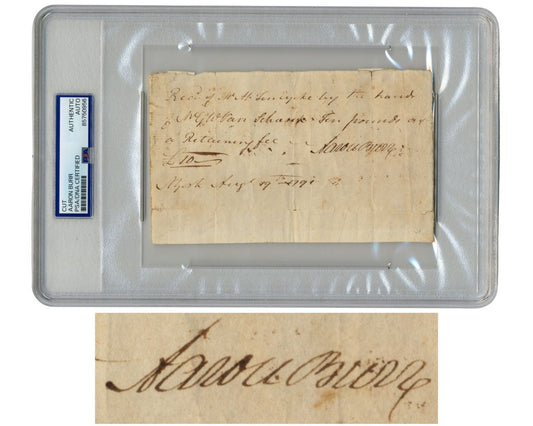 CUT
AARON BURR
PSA/DNA CERTIFIED
AUTHENTIC
AUTO
85750956
Recd of Mr H. by the hand
of Van Schaick Ten pounds as
a Retaining fee
£10 Aaron Burr
NYork Augt 19th 1791
Aaron Burr